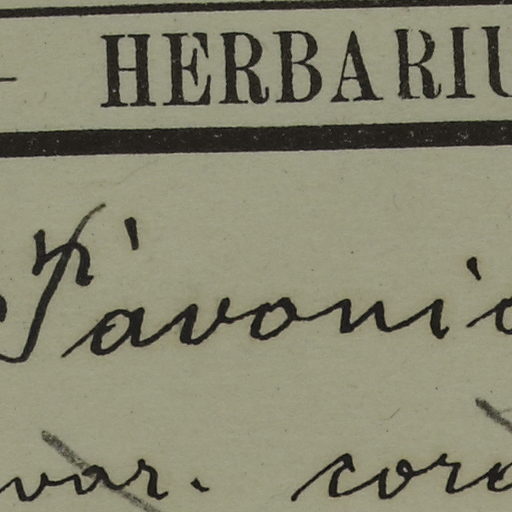 HERBARIU
Pavonia
var. cord